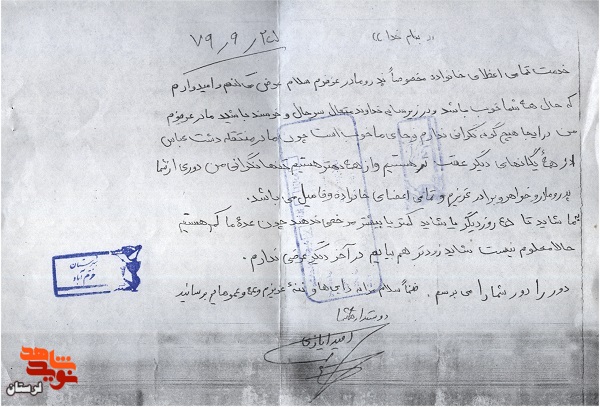 «بنام خدا»
۷۹/۹/۲۵
خدمت تمامی اعضای خانواده مخصوصاً پدر و مادر عزیزم سلام عرض میکنم و امیدوارم
که حال همهٔ شما خوب باشد و در زیر سایه خداوند متعال سرحال و خرسند باشید مادر عزیزم
من در اینجا هیچ گونه نگرانی ندارم و جای ما خوب است چون ما در منطقه دشت عباس
از همهٔ یگانهای دیگر عقب تر هستیم و از همه بهتر هستیم تنها نگرانی من دوری از شما
پدر و مادر و خواهر و برادر عزیزم و تمامی اعضای خانواده و فامیل می باشد.
شما شاید تا روز دیگر یا شاید کمتر یا بیشتر مرخصی ندهند چون عدهٔ ما کم هستیم
حالا معلوم نیست شاید زودتر هم بیایم در آخر دیگر عرضی ندارم.
دور را دور شما را می بوسم. ضمناً سلام مرا به دایی ها و عزیزم و عمو و عموهایم برسانید
دوستدار شما
امید ایازی
خرم آباد
نوید شاهد
لرستان